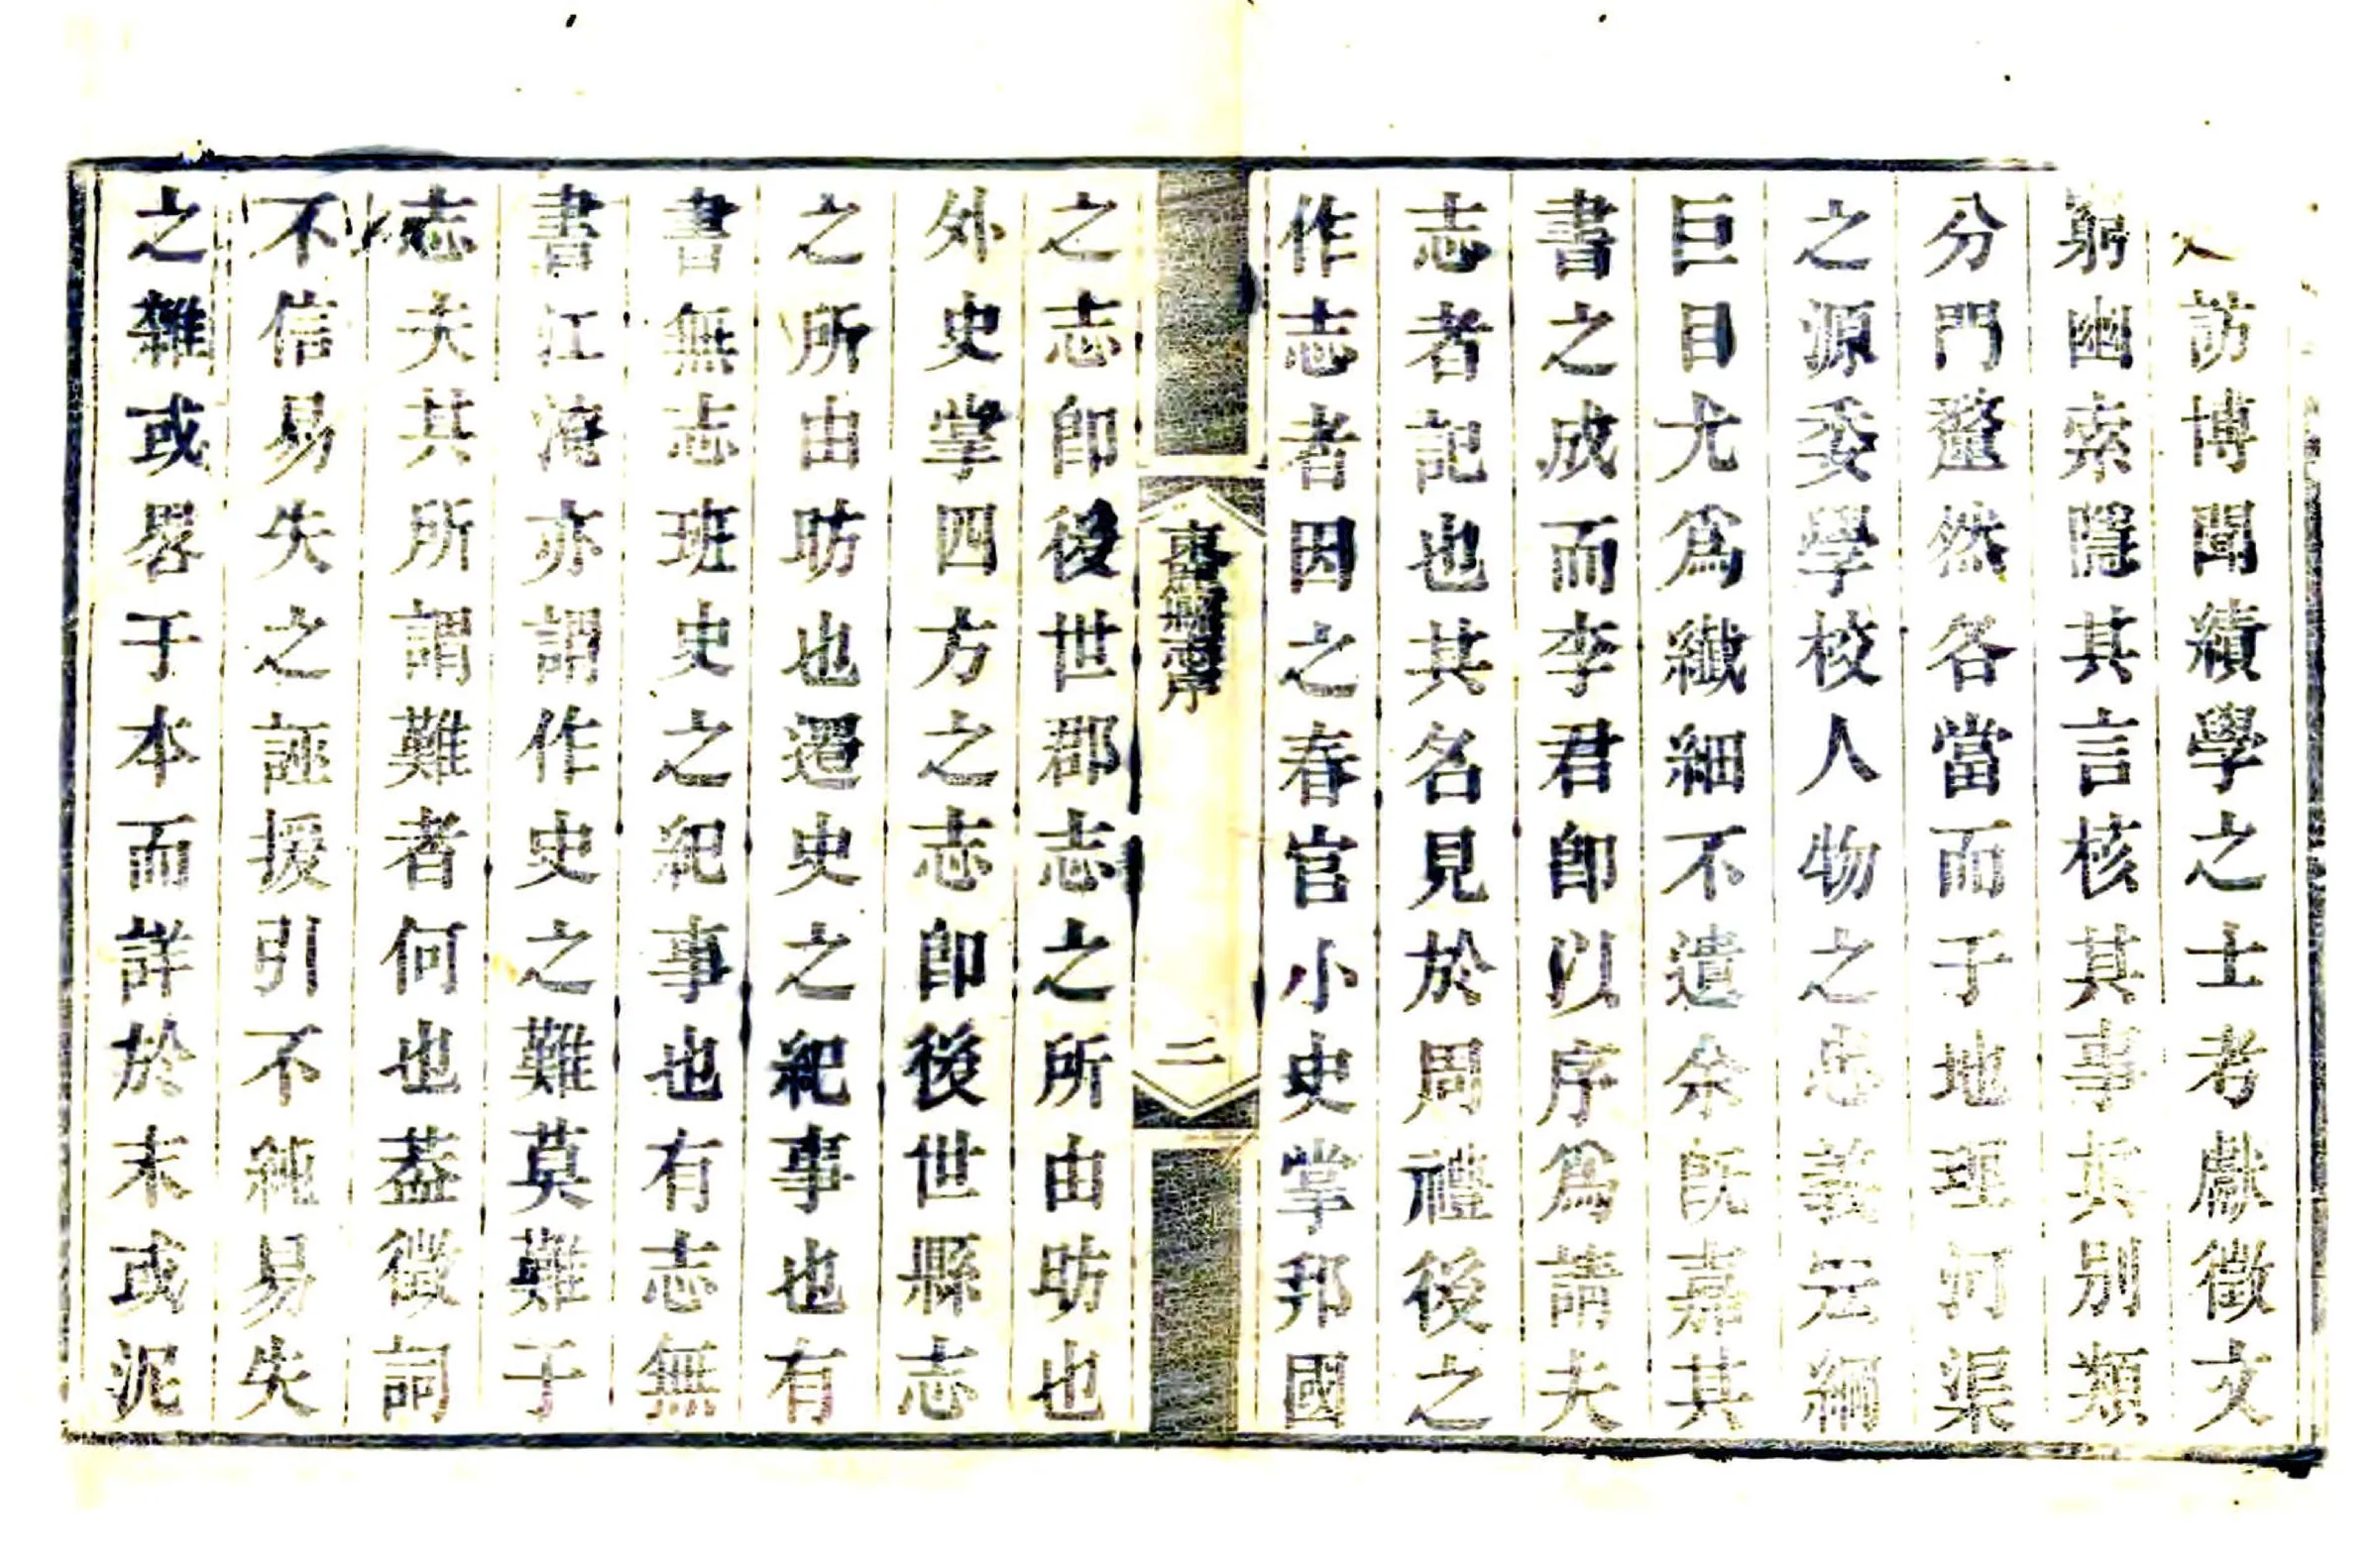 訪博聞績學之士考獻徵文
窮幽索隱其言核其事其別類
分門釐然各當而于地理河渠
之源委學校人物之忠義宏綱
巨目尤爲纖細不遺余旣嘉其
書之成而李君卽以序爲請夫
志者記也其名見於周禮後之
作志者因之春官小史掌邦國
二
之志卽後世郡志之所由昉也
外史掌四方之志卽後世縣志
之所由昉也遷史之紀事也有
書無志班史之紀事也有志無
書江淹亦謂作史之難莫難于
志夫其所謂難者何也葢徵詞
不信易失之誣援引不純易失
之雜或畧于本而詳於末或泥